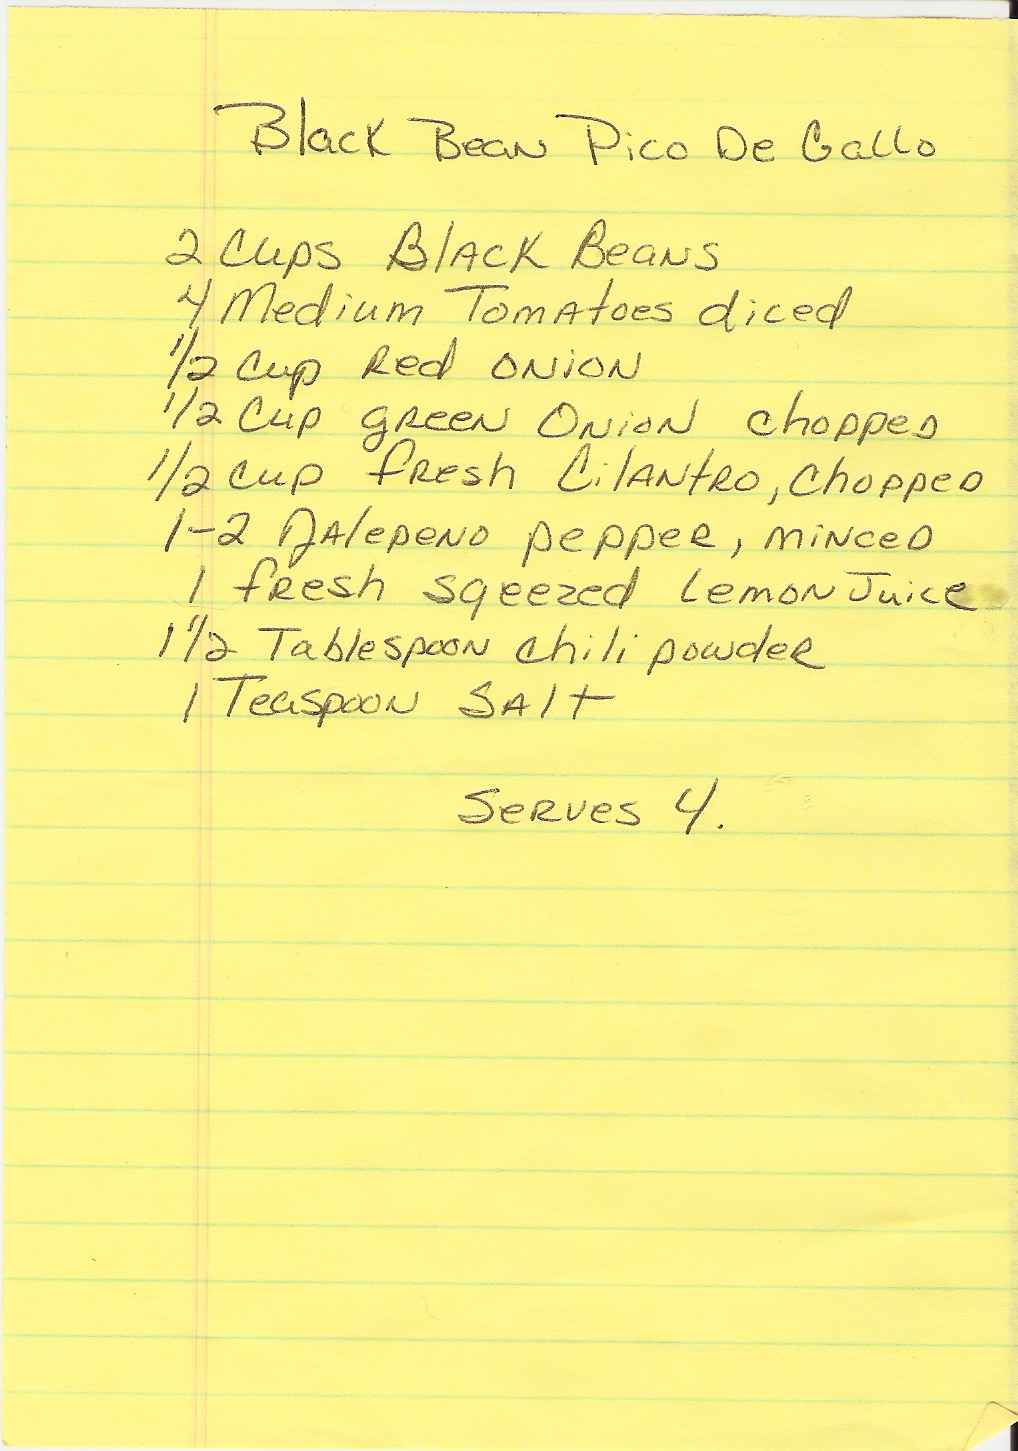 Black Bean Pico De Gallo
2 Cups Black Beans
4 Medium Tomatoes diced
1/2 Cup Red Onion
1/2 Cup green Onion chopped
1/2 Cup fresh Cilantro, chopped
1-2 Jalepeno pepper, minced
1 fresh sqeezed Lemon Juice
1 1/2 Tablespoon chili powder
1 Teaspoon Salt
Serves 4.